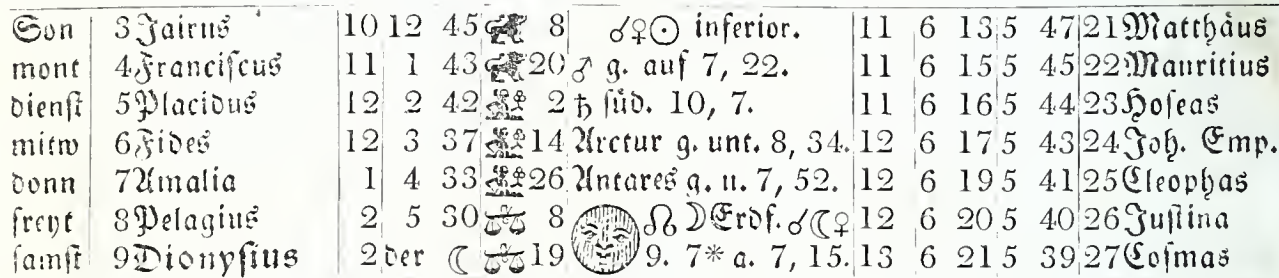 Son 3 Jairus 10 12 45 8 ☌♀☉ inferior. 11 6 13 5 47 21 Matthäus
mont 4 Franciſcus 11 1 43 20 ♂ g. auf 7, 22. 11 6 15 5 45 22 Mauritius
dienſt 5 Placidus 12 2 42 2 ♄ ſüd. 10, 7. 11 6 16 5 44 23 Hoſeas
mitw 6 Fides 12 3 37 14 Arctur g. unt. 8, 34. 12 6 17 5 43 24 Joh. Emp.
donn 7 Amalia 1 4 33 26 Antares g. u. 7, 52. 12 6 19 5 41 25 Cleophas
freyt 8 Pelagius 2 5 30 ♎ 8 ☊ ☽ Erdf. ☌☾♀ 12 6 20 5 40 26 Juſtina
ſamſt 9 Dionyſius 2 der ☾ ♎ 19 9. 7* a. 7, 15. 13 6 21 5 39 27 Coſmas